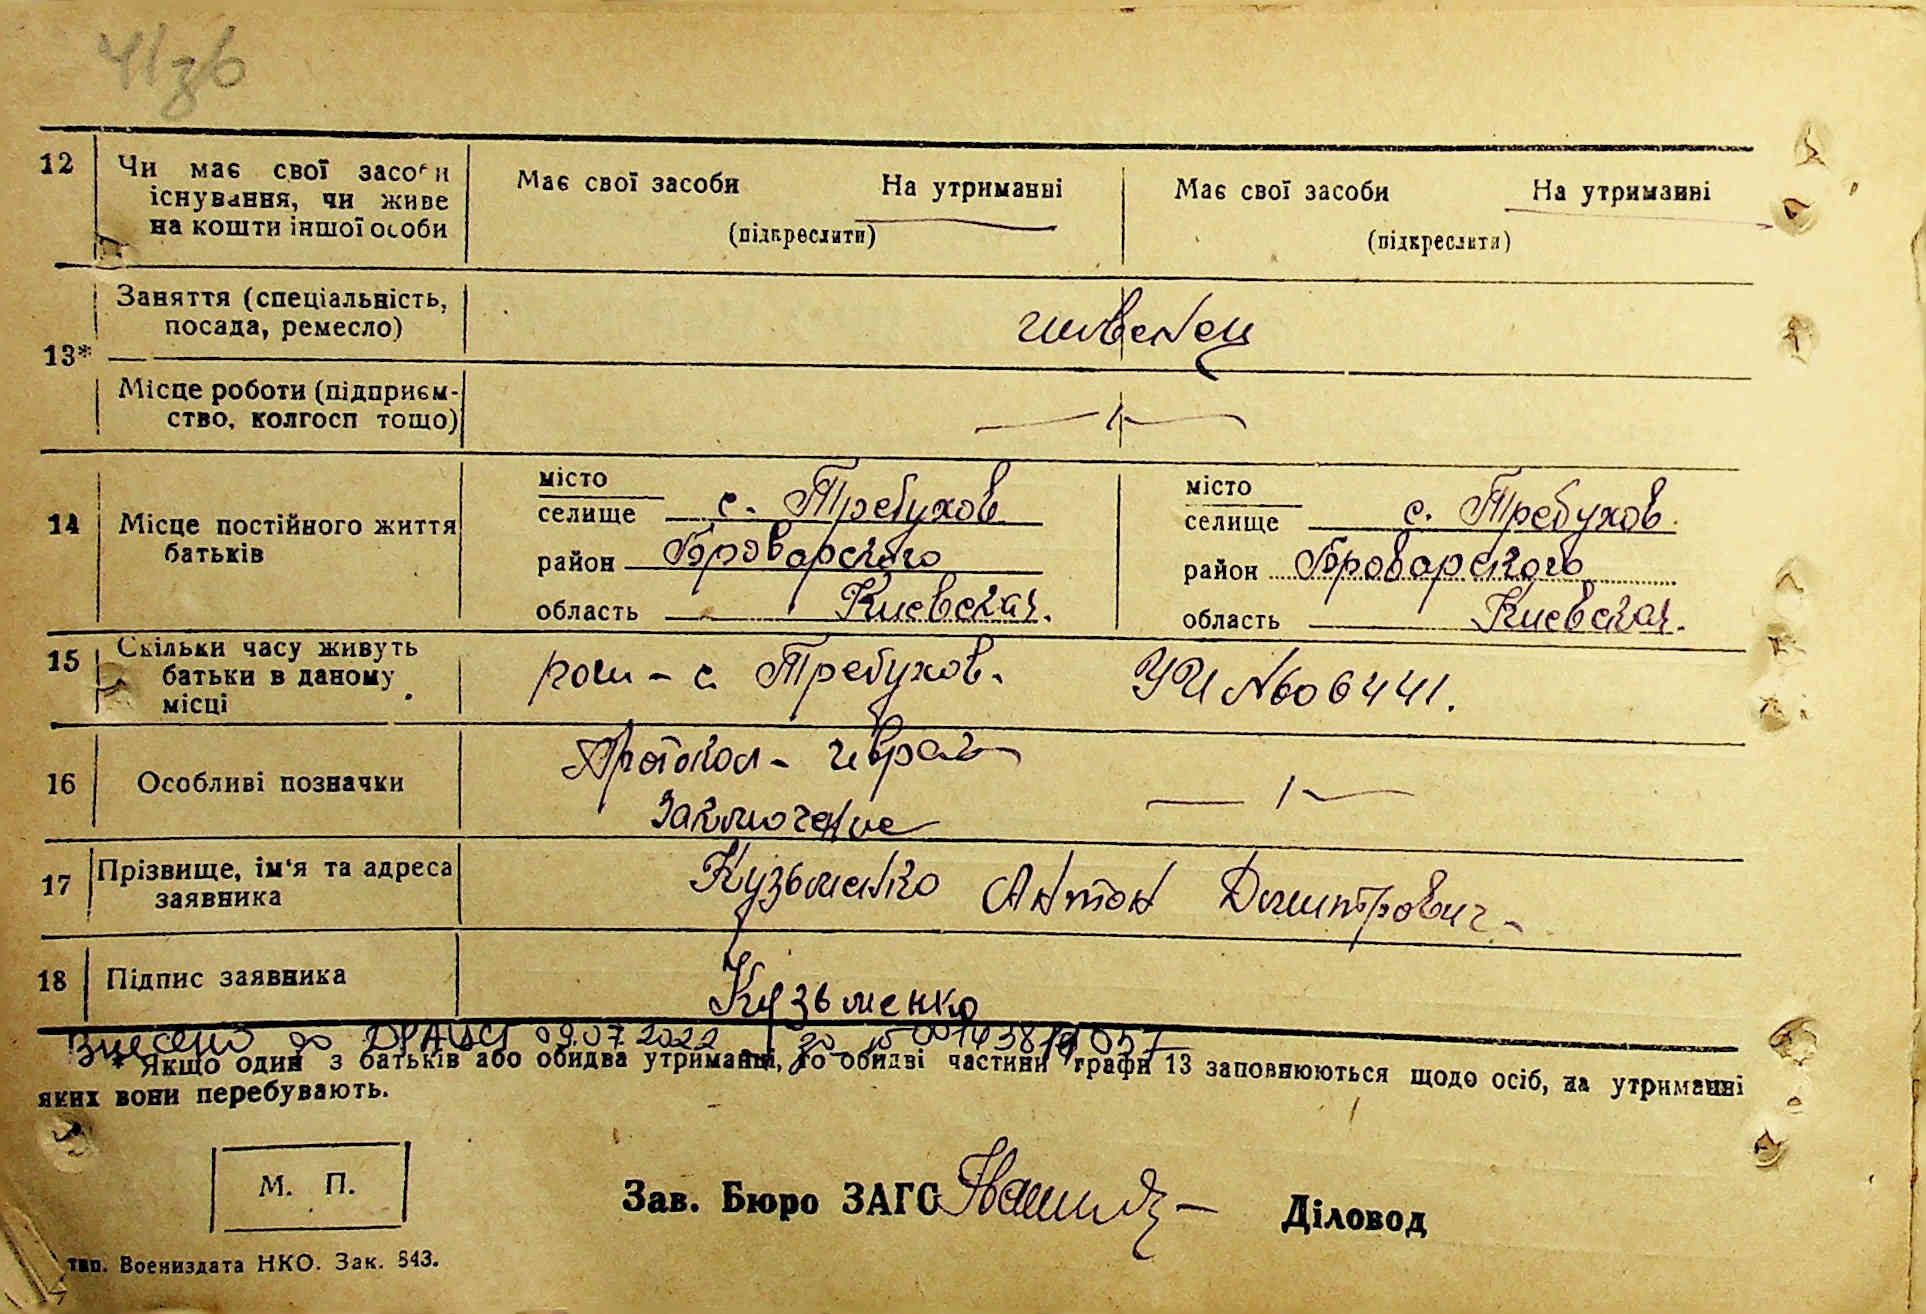 41зв
12 Чи має свої засоби Має свої засоби На утриманні Має свої засоби На утриманні
існування, чи живе
на кошти іншої особи (підкреслити) (підкреслити)
13* Заняття (спеціальність,
посада, ремесло) швенец
Місце роботи (підприєм-
ство, колгосп тощо)
14 Місце постійного життя
батьків
місто
селище с. Требухов
район Броварского
область Киевская.
місто
селище с. Требухов.
район Броварского
область Киевская.
15 Скільки часу живуть
батьки в даному
місці
рож - с. Требухов. УРИ №606441.
16 Особливі позначки Протокол -
Заключение
17 Прізвище, ім'я та адреса
заявника Кузьменко Антон Дмитрович -
18 Підпис заявника Кузьменко
Внесено до ДРАЦСГ 09.07.2022 за №
* Якщо один з батьків або обидва утриманці, то обидві частини графи 13 заповнюються щодо осіб, на утриманні
яких вони перебувають.
М. П.
Зав. Бюро ЗАГС Діловод
тип. Воениздата НКО. Зак. 843.